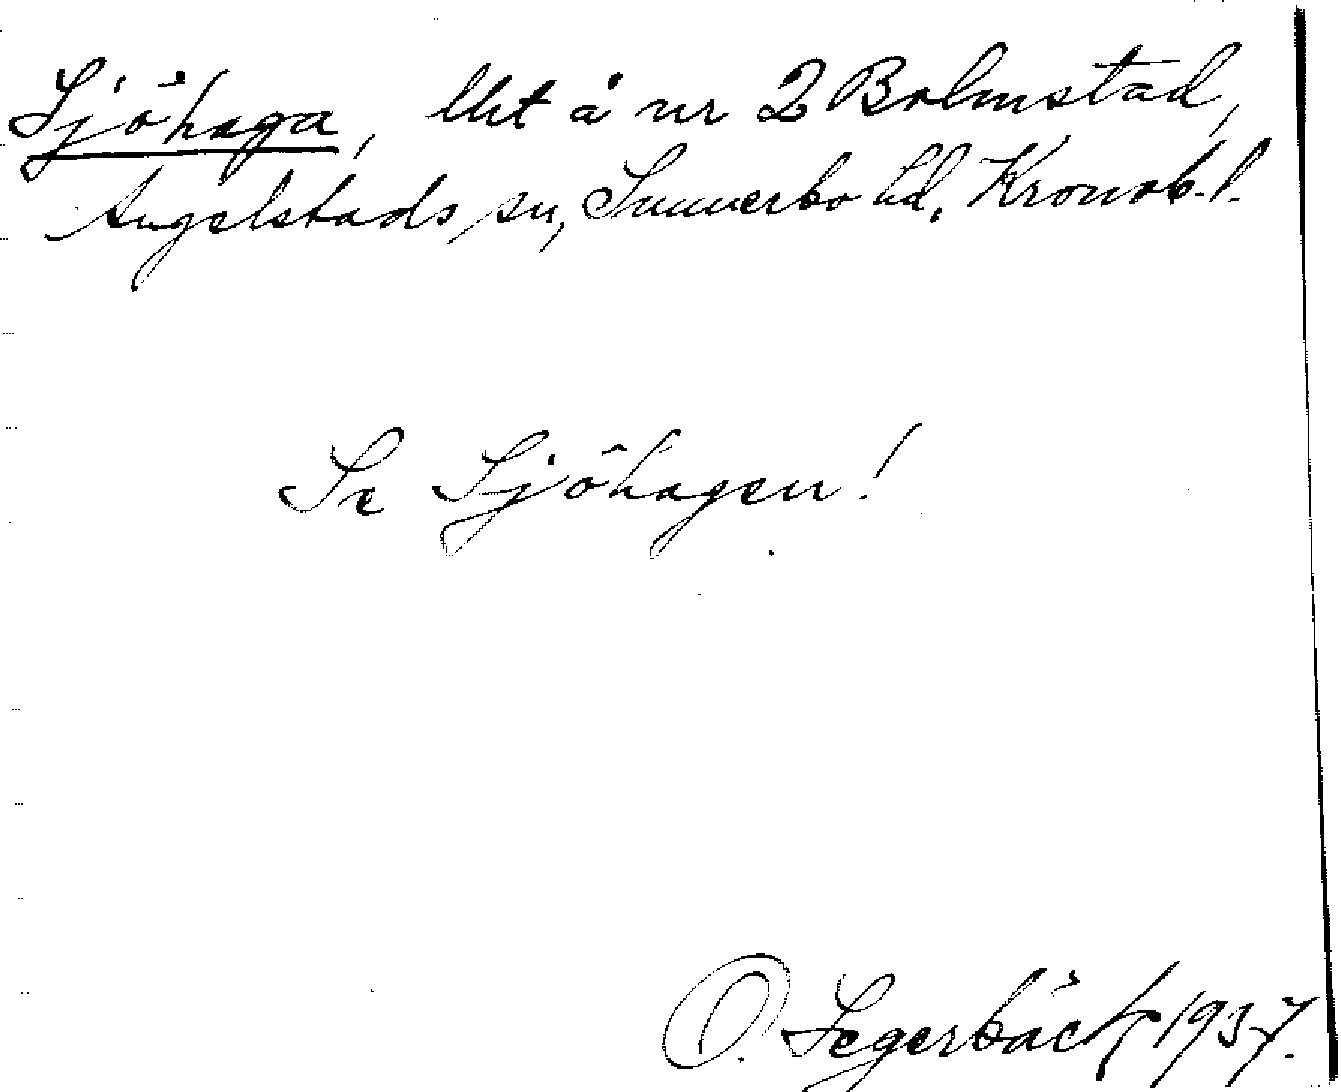 Sjöhaga, lht å nr 2 Bolmstad,
Angelstads sn, Sunnerbo hd, Kronob. l.
Se Sjöhagen!
O. Segerbäck 1937.